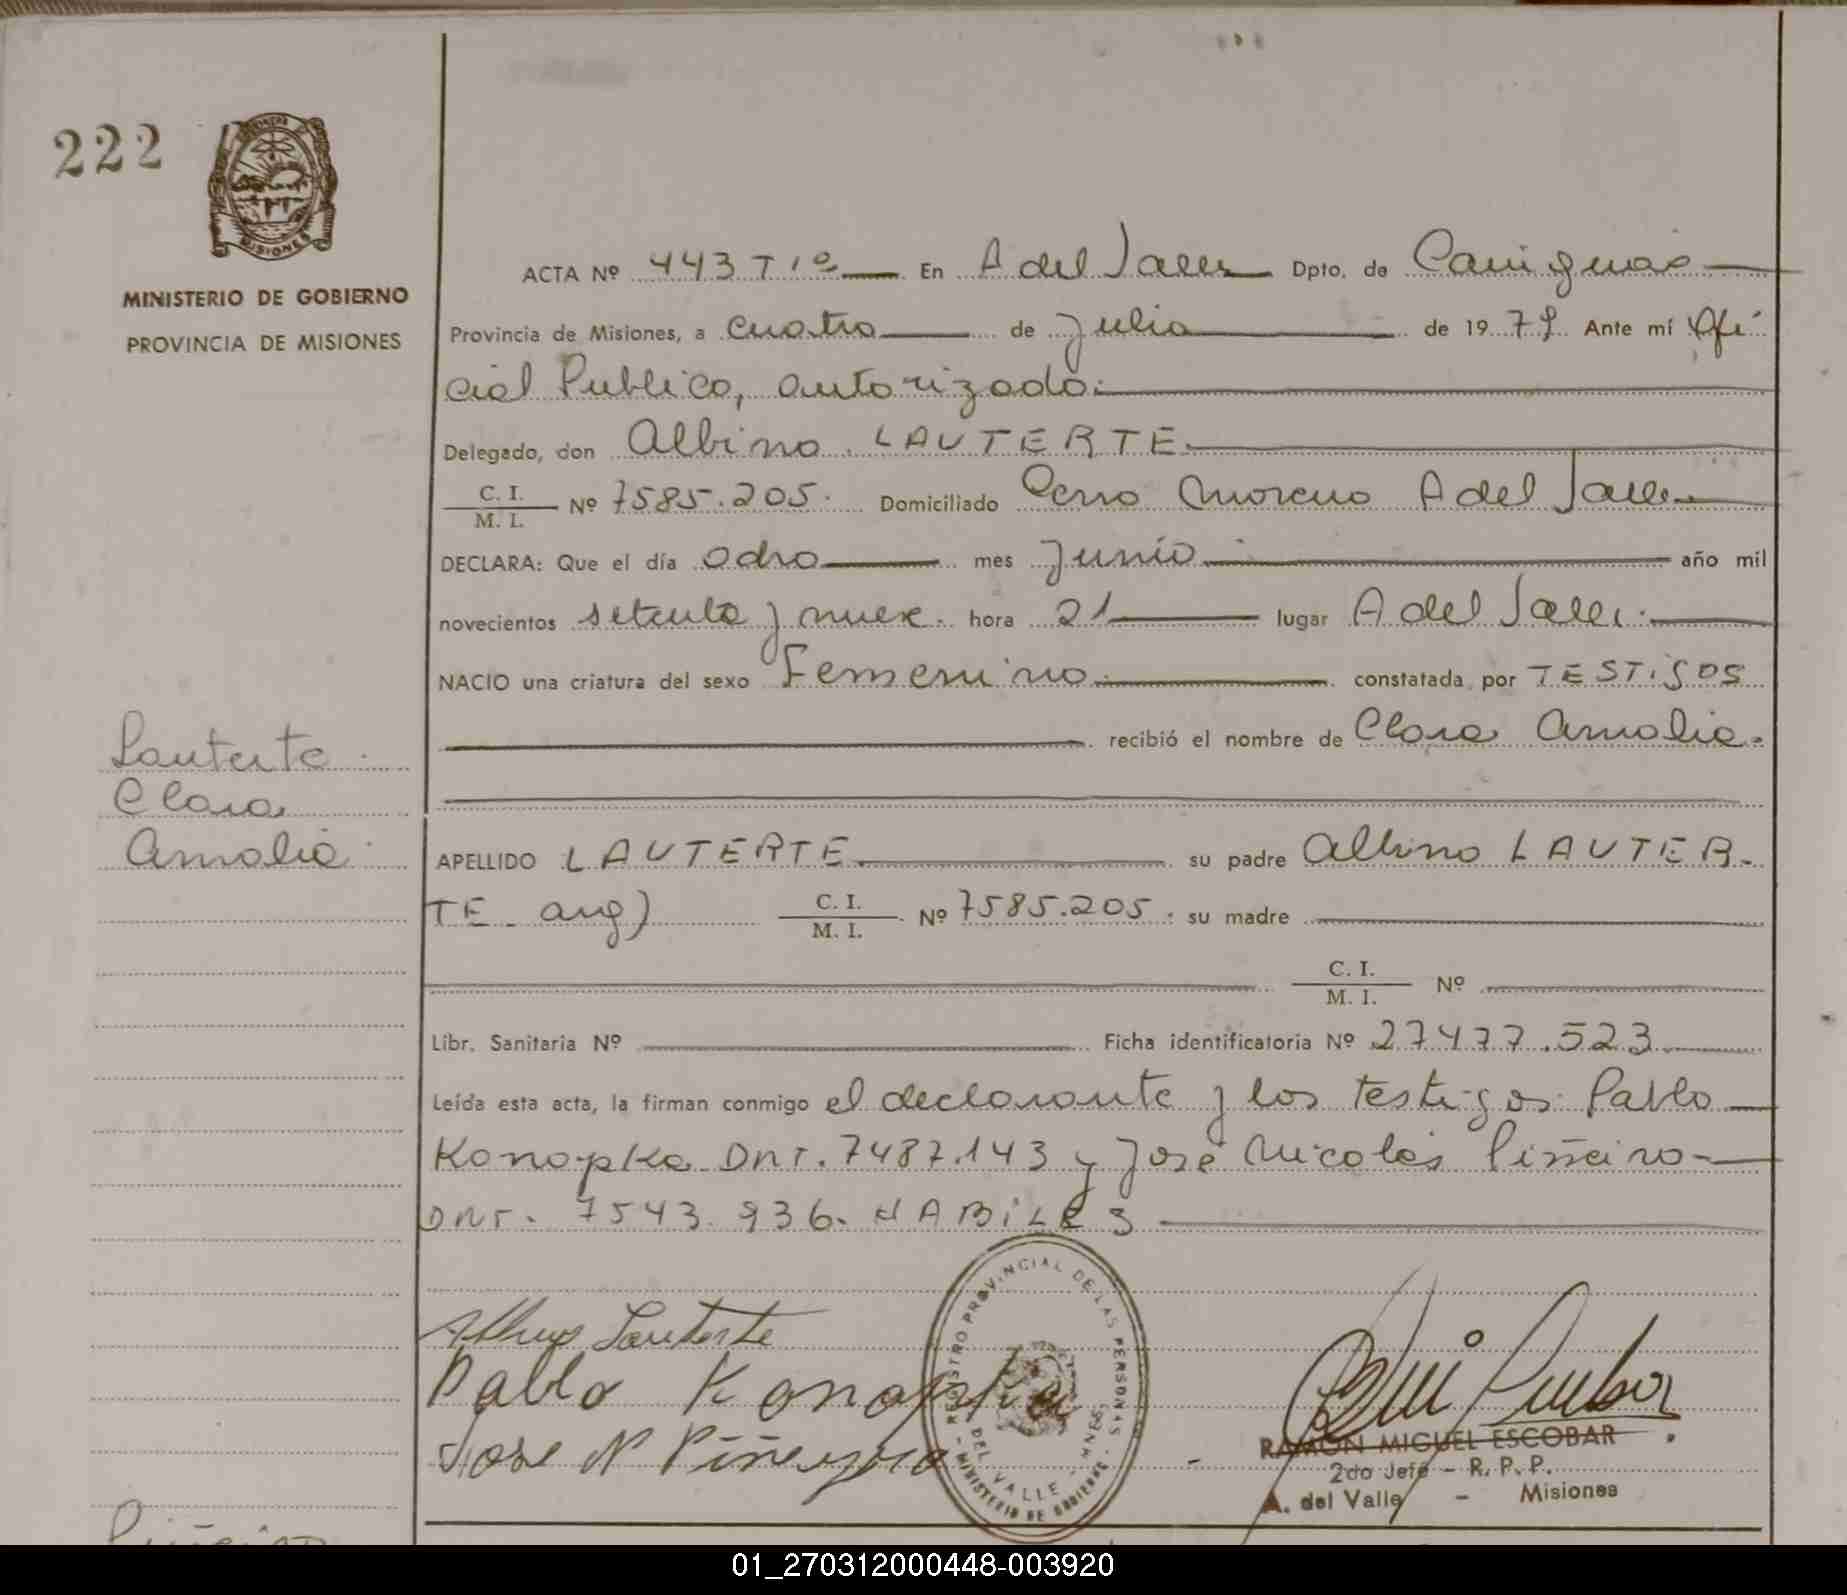 222
MISIONES
MINISTERIO DE GOBIERNO
PROVINCIA DE MISIONES
ACTA Nº 443 T 1º En A del Valle Dpto. de Cainguás
Provincia de Misiones, a cuatro de Julio de 1979 Ante mí Ofi
cial Publico, autorizado.
Delegado, don Albino LAUTERTE.
C. I.
M. I. Nº 7585.205. Domiciliado Cerro Moreno A del Valle
DECLARA: Que el día ocho mes Junio año mil
novecientos setenta y nueve. hora 21 lugar A del Valle.
NACIO una criatura del sexo Femenino. constatada por TESTiGOS
recibió el nombre de Clara Amalia.
Lauterte
Clara
Amalia
APELLIDO LAUTERTE su padre Albino LAUTER-
TE arg) C. I.
M. I. Nº 7585.205. su madre
C. I.
M. I. Nº
Libr. Sanitaria Nº Ficha identificatoria Nº 27477.523
Leída esta acta, la firman conmigo el declarante y los testigos Pablo
Konopka DNI. 7487.143 y José Nicolás Piñeiro
DNI. 7543.936. HABiLES
Albino Lauterte
Pablo Konopka
Jose N Piñeyro
REGISTRO PROVINCIAL DE LAS PERSONAS
DEL VALLE
MINISTERIO DE GOBIERNO
RAMON MIGUEL ESCOBAR
2do Jefe - R. P. P.
A. del Valle - Misiones
Piñeiro
01_270312000448-003920